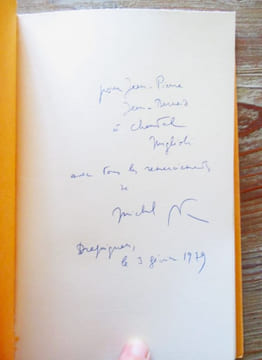 pour Jean-Pierre
Jean-Bernard
à Chantal
avec tous les remerciements
de
Michel
Draguignan,
le 3 février 1979